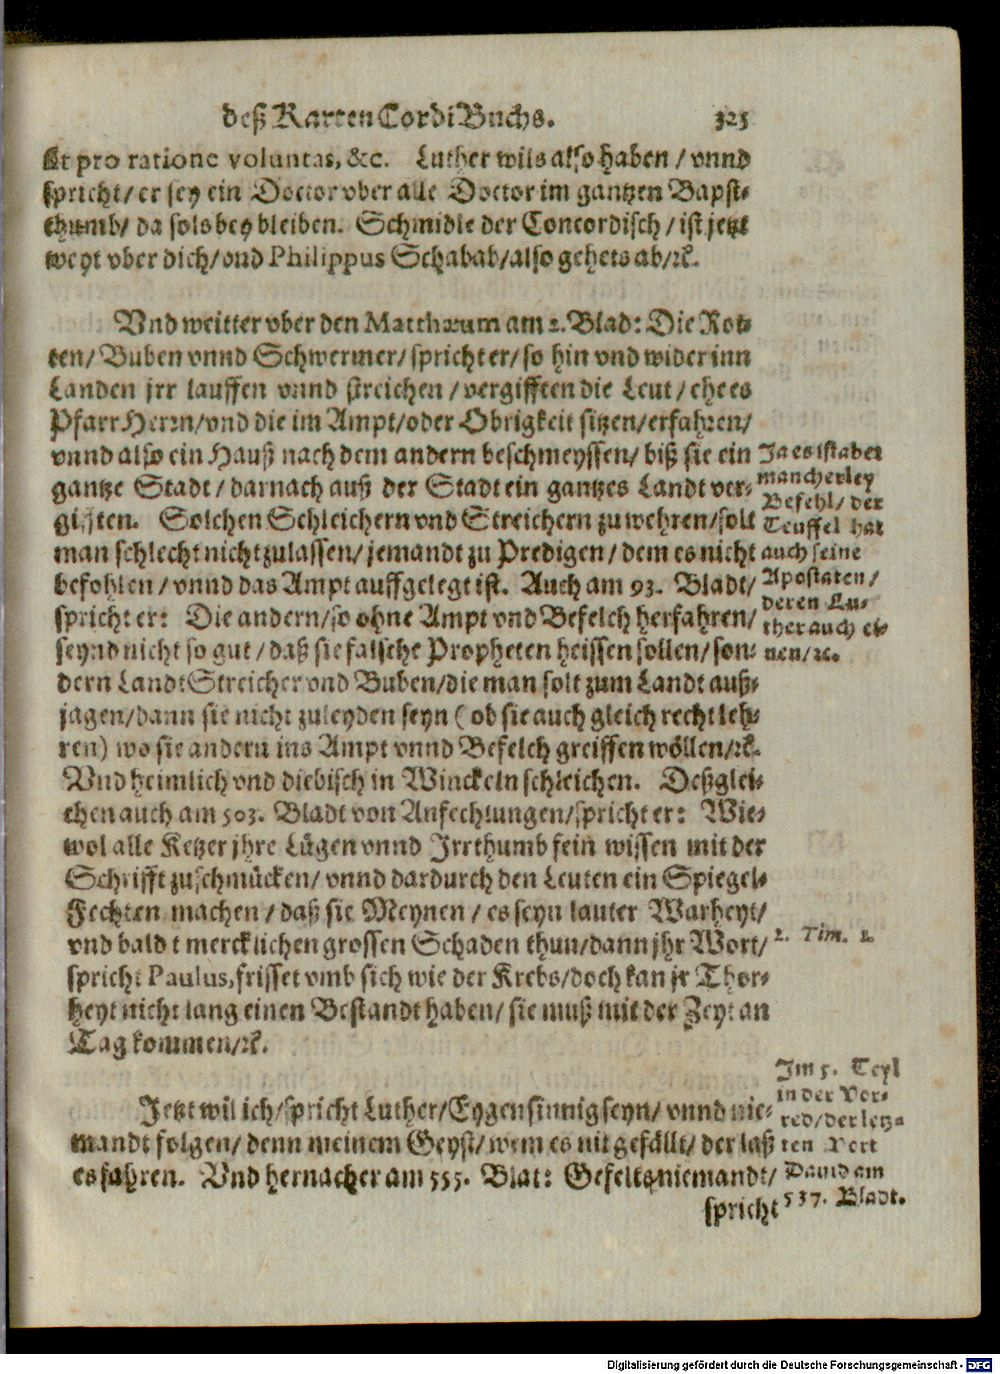 deß Karten Cordi Buchs. 325
Et pro ratione voluntas, &c. Luther wils also haben / vnnd
spricht / er sey ein Doctor vber alle Doctor im gantzen Bapst-
thumb / da sols bey bleiben. Schmidle der Concordisch / ist jetzt
weyt vber dich / vnd Philippus Schabab / also gehets ab / ꝛc.
Vnd weitter vber den Matthæum am 2. Blad: Die Rot-
ten / Buben vnnd Schwermer / spricht er / so hin vnd wider inn
Landen jrr lauffen vnnd streichen / vergifften die Leut / ehe es
Pfarr Herrn / vnd die im Ampt / oder Obrigkeit sitzen / erfahren /
vnnd also ein Hauß nach dem andern beschmeyssen / biß sie ein
gantze Stadt / darnach auß der Stadt ein gantzes Landt ver-
gifften. Solchen Schleichern vnd Streichern zu wehren / solt
man schlecht nicht zulassen / jemandt zu Predigen / dem es nicht
befohlen / vnnd das Ampt auffgelegt ist. Auch am 93. Bladt /
spricht er: Die andern / so ohne Ampt vnd Befelch herfahren /
seynd nicht so gut / daß sie falsche Propheten heissen sollen / son-
dern Landt Streicher vnd Buben / die man solt zum Landt auß-
jagen / dann sie nicht zuleyden seyn ( ob sie auch gleich recht leh-
ren) wo sie andern ins Ampt vnnd Befelch greiffen wöllen / ꝛc.
Vnd heimlich vnd diebisch in Winckeln schleichen. Deßglei-
chen auch am 503. Bladt von Anfechtungen / spricht er: Wie-
wol alle Ketzer jhre Lügen vnnd Irrthumb fein wissen mit der
Schrifft zuschmücken / vnnd dardurch den Leuten ein Spiegel-
Fechten machen / daß sie Meynen / es seyn lauter Warheyt /
vnd baldt mercklichen grossen Schaden thun / dann jhr Wort /
spricht Paulus, frisset vmb sich wie der Krebs / doch kan jr Thor-
heyt nicht lang einen Bestandt haben / sie muß mit der Zeyt an
Tag kommen / ꝛc.
Jetzt wil ich / spricht Luther / Eygensinnig seyn / vnnd nie-
mandt folgen / denn meinem Geyst / wem es nit gefällt / der laß
es fahren. Vnd hernacher am 555. Blat: Gefelts niemandt /
spricht
Ja es ist aber
mancherley
Befehl / der
Teuffel hat
auch seine
Apostaten /
deren Lu-
ther auch ei-
nen / ꝛc.
2. Tim. 2.
Im 5. Teyl
in der Vor-
red / der letz-
ten Wort
Dauid am
537. Bladt.
Digitalisierung gefördert durch die Deutsche Forschungsgemeinschaft - DFG